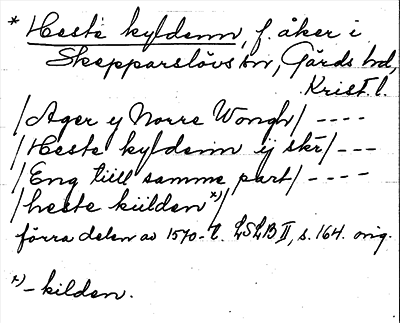 * Heste kyldenn, f. åker i
Skepparslövs sn, Gärds hd,
Krist. l.
/Ager y Norre Wongh/ ----
/Heste kyldenn ij skr/ ---
/Eng tiill samme part/ ----
/heste kiilden *)/
förra delen av 1570-t. LSLB II, s. 164. orig.
*) -kilden.